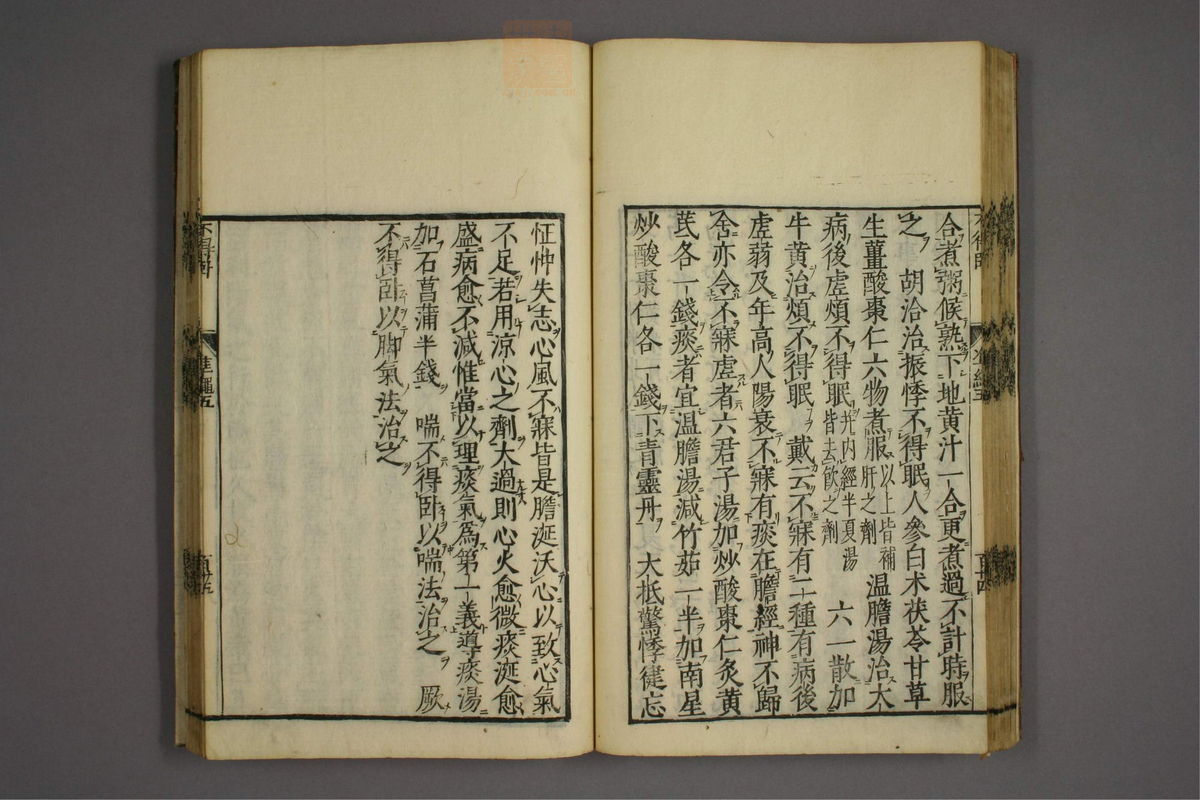 合煮粥候熟下地黄汁一合更煮過不計時服
之　胡洽治振悸不得眠人參白术茯苓甘草
生薑酸棗仁六物煮服以上皆補肝之劑　溫膽湯治大
病後虚煩不得眠此内經半夏湯皆去飲之劑　六一散加
牛黄治煩不得眠　戴云不寐有二種有病後
虚弱及年高人陽衰不寐有痰在膽經神不歸
舍亦令不寐虚者六君子湯加炒酸棗仁炙黄
芪各一錢痰者宜温膽湯減竹茹一半加南星
炒酸棗仁各一錢下青靈丹　大抵驚悸徤忘
怔忡失志心風不寐皆是膽涎沃心以致心氣
不足若用凉心之劑大過則心火愈微痰涎愈
盛病愈不減惟當以理痰氣爲第一義導痰湯
加石菖蒲半錢　喘不得卧以喘法治之　厥
不得卧以脚氣法治之
不得卧
準繩五